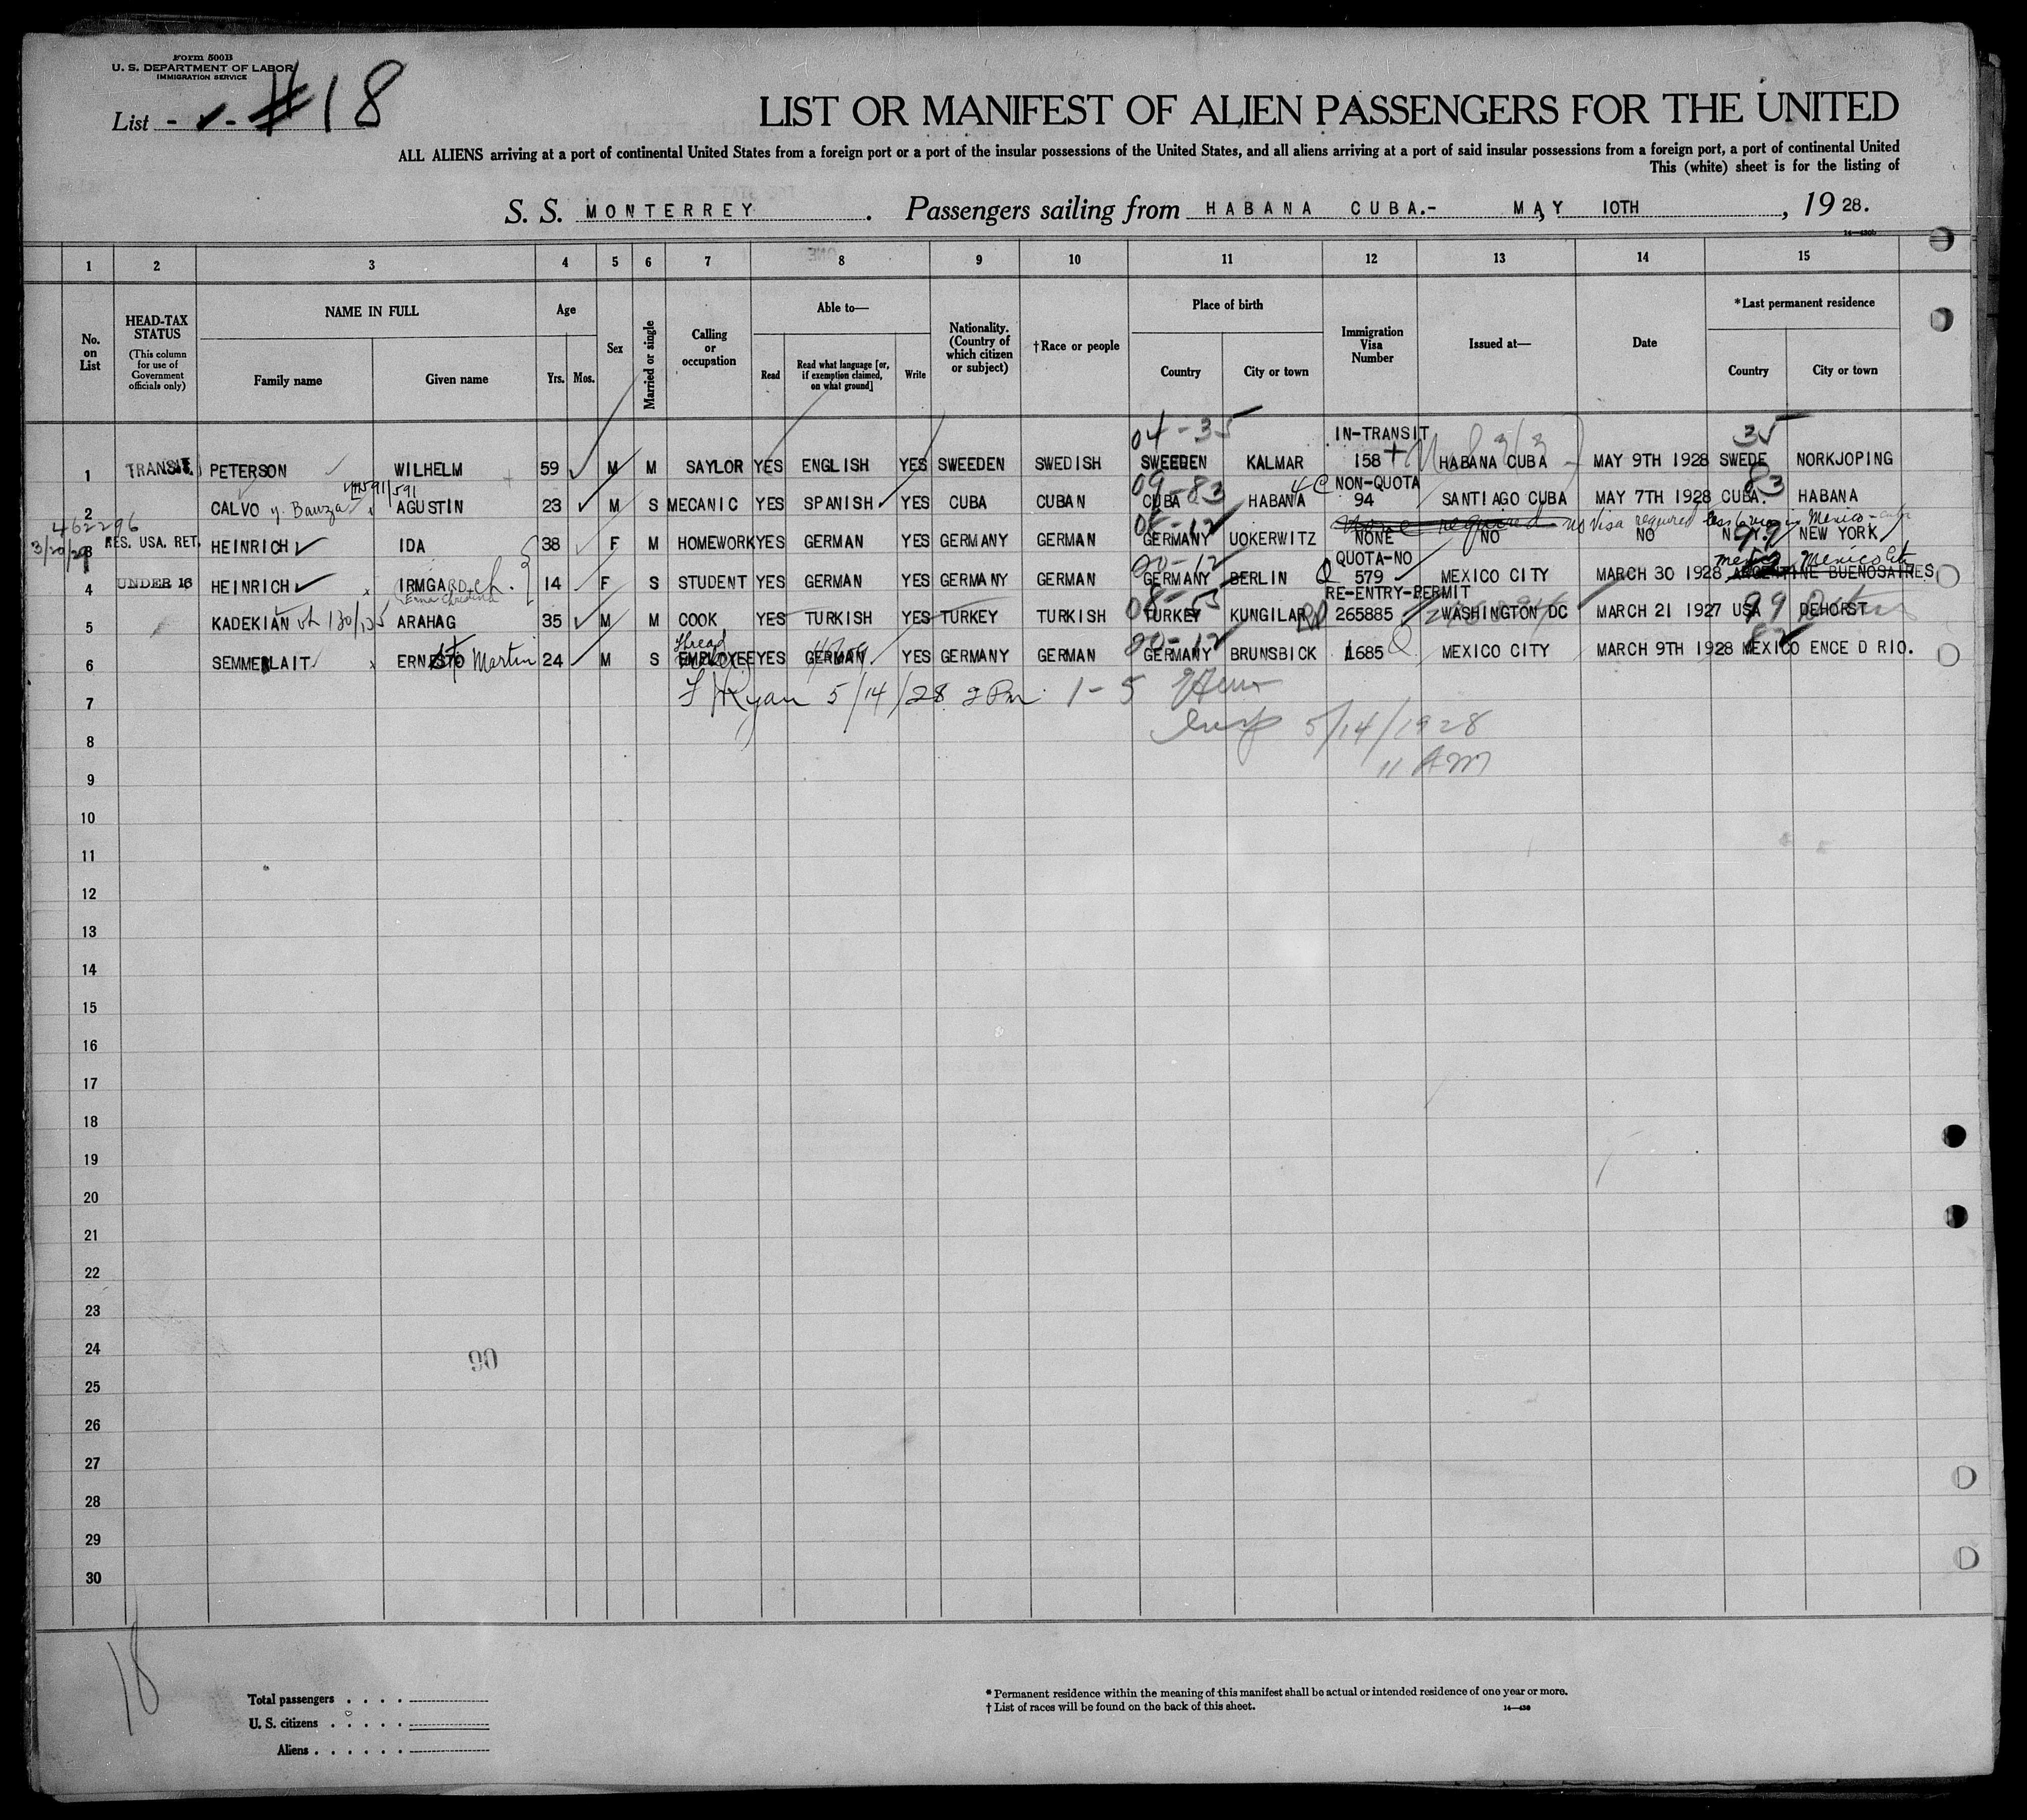 Form 500B
U. S. DEPARTMENT OF LABOR
IMMIGRATION SERVICE
List - - #18
LIST OR MANIFEST OF ALIEN PASSENGERS FOR THE UNITED
ALL ALIENS arriving at a port of continental United States from a foreign port or a port of the insular possessions of the United States, and all aliens arriving at a port of said insular possessions from a foreign port, a port of continental United
This (white) sheet is for the listing of
S. S. MONTERREY. Passengers sailing from HABANA CUBA.- MAY 10TH, 1928.
14—430b
1 2 3 4 5 6 7 8 9 10 11 12 13 14 15
No. on List
HEAD-TAX STATUS (This column for use of Government officials only)
NAME IN FULL Family name Given name
Age Yrs. Mos.
Sex
Married or single
Calling or occupation
Able to— Read Read what language [or, if exemption claimed, on what ground] Write
Nationality. (Country of which citizen or subject)
†Race or people
Place of birth Country City or town
Immigration Visa Number
Issued at—
Date
*Last permanent residence Country City or town
04-35 IN-TRANSIT 35
1 TRANSIT PETERSON WILHELM 59 M M SAYLOR YES ENGLISH YES SWEEDEN SWEDISH SWEEDEN KALMAR 158 HABANA CUBA MAY 9TH 1928 SWEDE NORKJOPING
09-83 4C NON-QUOTA 83
2 CALVO y. Bauza AGUSTIN 23 M S MECANIC YES SPANISH YES CUBA CUBAN CUBA HABANA 94 SANTIAGO CUBA MAY 7TH 1928 CUBA. HABANA
462296 none required no Visa required less 6 mos in Mexico - Cuba
3/20/29 3 RES. USA. RET. HEINRICH IDA 38 F M HOMEWORK YES GERMAN YES GERMANY GERMAN GERMANY UOKERWITZ NONE NO NO N.Y. 99 NEW YORK
20-12 QUOTA-NO Mexico Mexico City
4 UNDER 16 HEINRICH IRMGARD ch. 14 F S STUDENT YES GERMAN YES GERMANY GERMAN GERMANY BERLIN Q 579 MEXICO CITY MARCH 30 1928 ARGENTINE BUENOSAIRES
RE-ENTRY-PERMIT
5 KADEKIAN ARAHAG 35 M M COOK YES TURKISH YES TURKEY TURKISH TURKEY KUNGILAR 265885 WASHINGTON DC MARCH 21 1927 USA 99 DEHORST
20-12
6 SEMMERLAIT ERNESTO Martin 24 M S EMPLOYEE YES GERMAN YES GERMANY GERMAN GERMANY BRUNSBICK 1685 Q MEXICO CITY MARCH 9TH 1928 MEXICO ENCE D RIO.
7 Ryan 5/14/28 2 PM 1-5
8 5/14/1928
9 11 AM
10
11
12
13
14
15
16
17
18
19
20
21
22
23
24
90
25
26
27
28
29
30
18
Total passengers
U. S. citizens
Aliens
* Permanent residence within the meaning of this manifest shall be actual or intended residence of one year or more.
† List of races will be found on the back of this sheet.
14—430